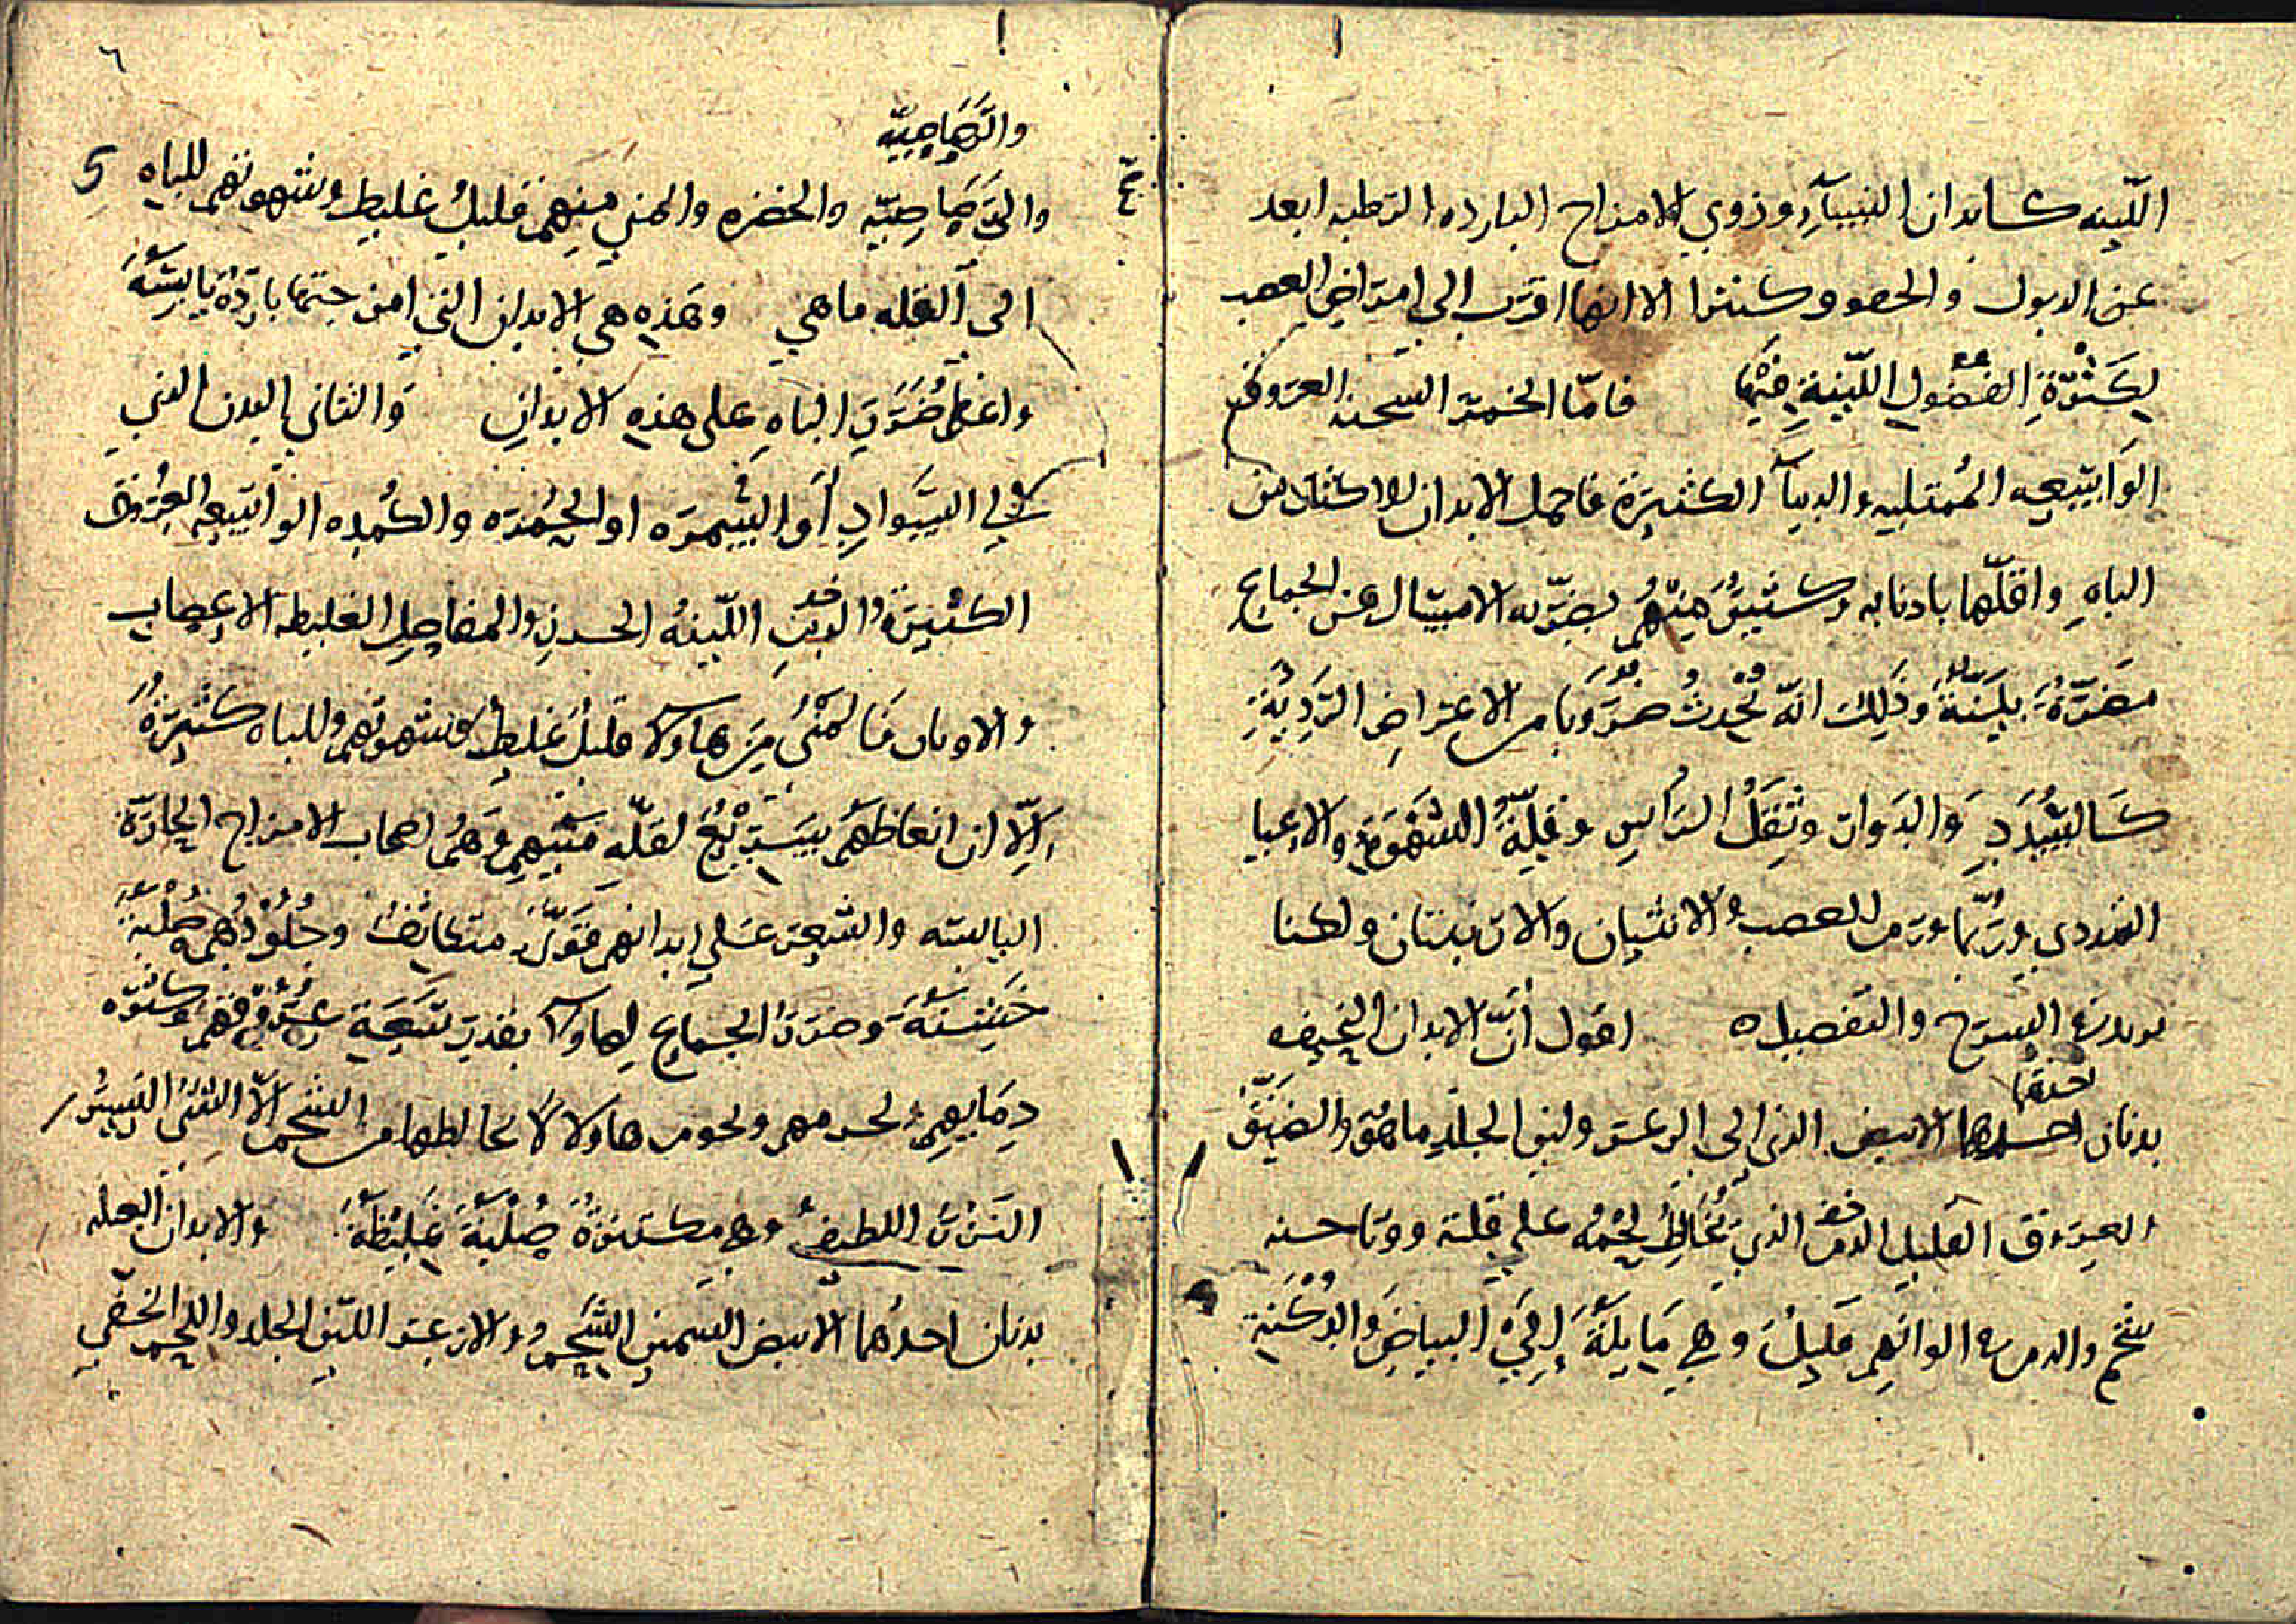 اللّينه كابدان النساء وذوي الامزاج البارده الرطبه ابعد
عن الدبول والحصو وكنثرا الا انها اقرب الي امراض العصب
لكَثرَةِ الفضول اللّينةِ فيها فامّا الخمر السحنه العروف
الواسعه المُمتليه والدماء الكثيرَة فاحمل الابدان للاكثار من
الباهِ واقلّها بادنابه وكثيرٌ منهُم يضرّ به الامساك عن الجماع
مضرّةً بيّنةً وذَلِكَ انّه تُحْدثُ ضروبا من الاعراضِ الرّديّةِ
كالسُّدَدِ وَالدَوار وثِقَلُ الرّاسِ وقِلّةُ الشّهوةِ والاعيا
التمددي ورُبّما ورم العصب والانثيان والارنبتان ولكنا
نورد الشرح والتفصيل ه اقول أنّ الابدان النحيفه
بدنان احدهما الابيض الذي الي الزعر ولين الجلدِ ماهُو والضيّق
العروق القليل الدم الذي تُخَالِطُ لحْمُه علي قلته ووتاحسنه
شحم والدم في الوانهم قليلٌ وهي مَايلَةٌ إلَيْ البياضِ وَالدُكْنةِ
٦
والرَّصَاصِيّه
والرَّصَاصِيّه والخضره والمني منهم قليلٌ غليط وشهوتهم للباهِ
5
الي القله ماهي وهَذِه هي الابدان التي امزجتها باردَةٌ يَابسَةٌ
واعظم ضَرَرِ الباهِ علي هذه الابدانِ وَالثاني البدن الذي
الي السَّوادِ أو السّمرَه او الحُمرَه والكُمده الواسعه العُروق
الكثيرَةُ الدمِ اللّينهُ الحسدن والمفاصِلِ الغليظه الاعصاب
والاوتار فالمَنْيُ مِن هاولا قليلٌ غليطٌ وشهوتهم للباه كثيرَةٌ
إلّا ان انعاظهَم يَسترْخ لقلّه مَنيهمِ وَهُم اصحاب الامزاج الحارّة
اليابسه والشعر عَلي ابدانهم قويّ متكاثفُ وجُلُودُهم صُلْبَةٌ
خَشِنَةٌ وضررُ الجماع لهاولاء بقدرِ سَعَةِ عُرُوقهم وكثرَه
دِمَايهِم ولحومهم ولحوم هاولا لا تخالطها من الشحمِ الّا الشئُ اليَسيرُ
النَزْرُ اللطيفُ وهي مكتنزةٌ صُلْبَةٌ غَليظَةٌ والابدان العبله
بدنان احدُهما الابيض السّمين الشَّحِم والازعر اللّين الجلد واللحم الخَفي